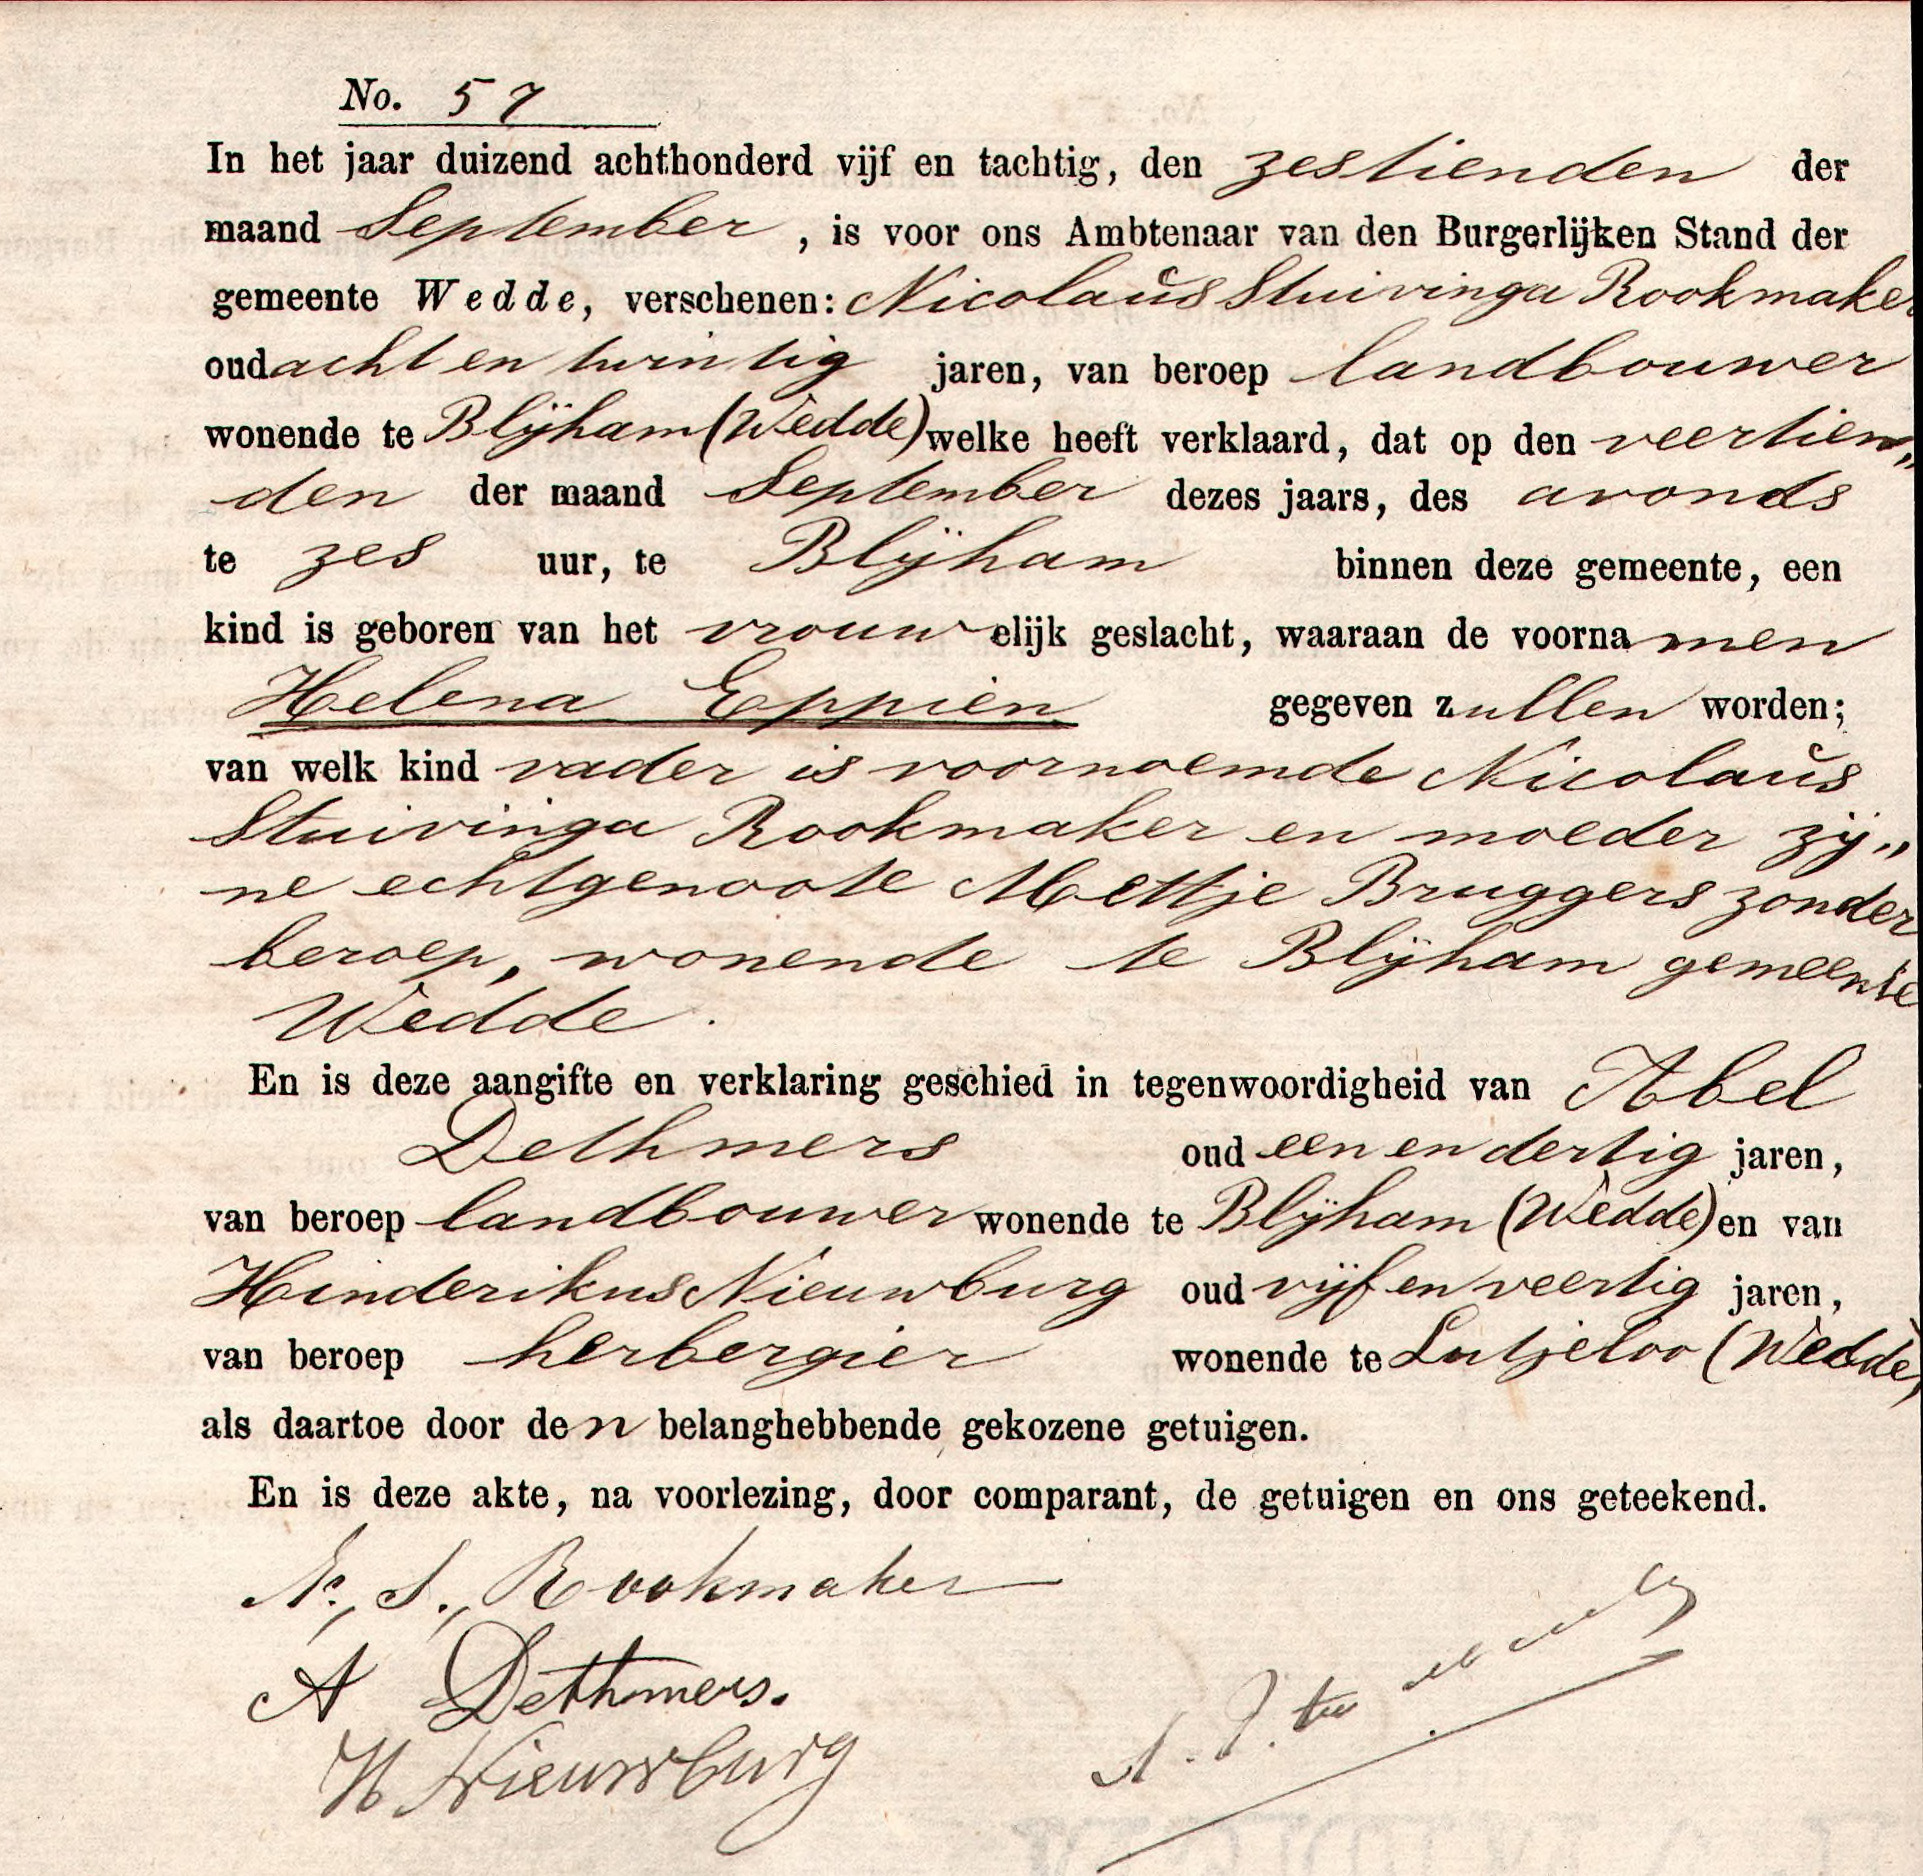 No. 57
In het jaar duizend achthonderd vijf en tachtig, den zestienden der
maand September, is voor ons Ambtenaar van den Burgerlijken Stand der
gemeente Wedde, verschenen: Nicolaus Stuivinga Rookmaker
oud acht en twintig jaren, van beroep landbouwer
wonende te Blijham (Wedde) welke heeft verklaard, dat op den veertien„
den der maand September dezes jaars, des avonds
te zes uur, te Blijham binnen deze gemeente, een
kind is geboren van het vrouwelijk geslacht, waaraan de voornamen
Helena Eppien gegeven zullen worden;
van welk kind vader is voornoemde Nicolaus
Stuivinga Rookmaker en moeder zij„
ne echtgenoote Mettje Bruggers zonder
beroep, wonende te Blijham gemeente
Wedde.
En is deze aangifte en verklaring geschied in tegenwoordigheid van Abel
Dethmers oud een en dertig jaren,
van beroep landbouwer wonende te Blijham (Wedde) en van
Hinderikus Nieuwburg oud vijf en veertig jaren,
van beroep herbergier wonende te Lutjeloo (Wedde)
als daartoe door den belanghebbende gekozene getuigen.
En is deze akte, na voorlezing, door comparant, de getuigen en ons geteekend.
N., S., Rookmaker
A Dethmers.
H Nieuwburg